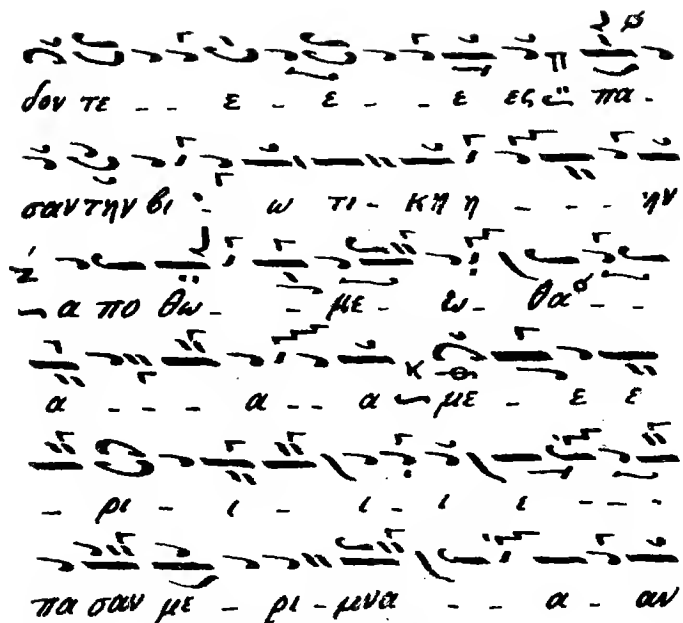 δον τε -- ε - ε -- ε ες πα-
σαν την βι - ω τι- κη η ---- ην
α πο θω-- με- ω- θα--
α ---- α -- α με - ε ε
- ρι - ι - ι - ι ι ----
πα σαν με - ρι - μνα --- α - αν